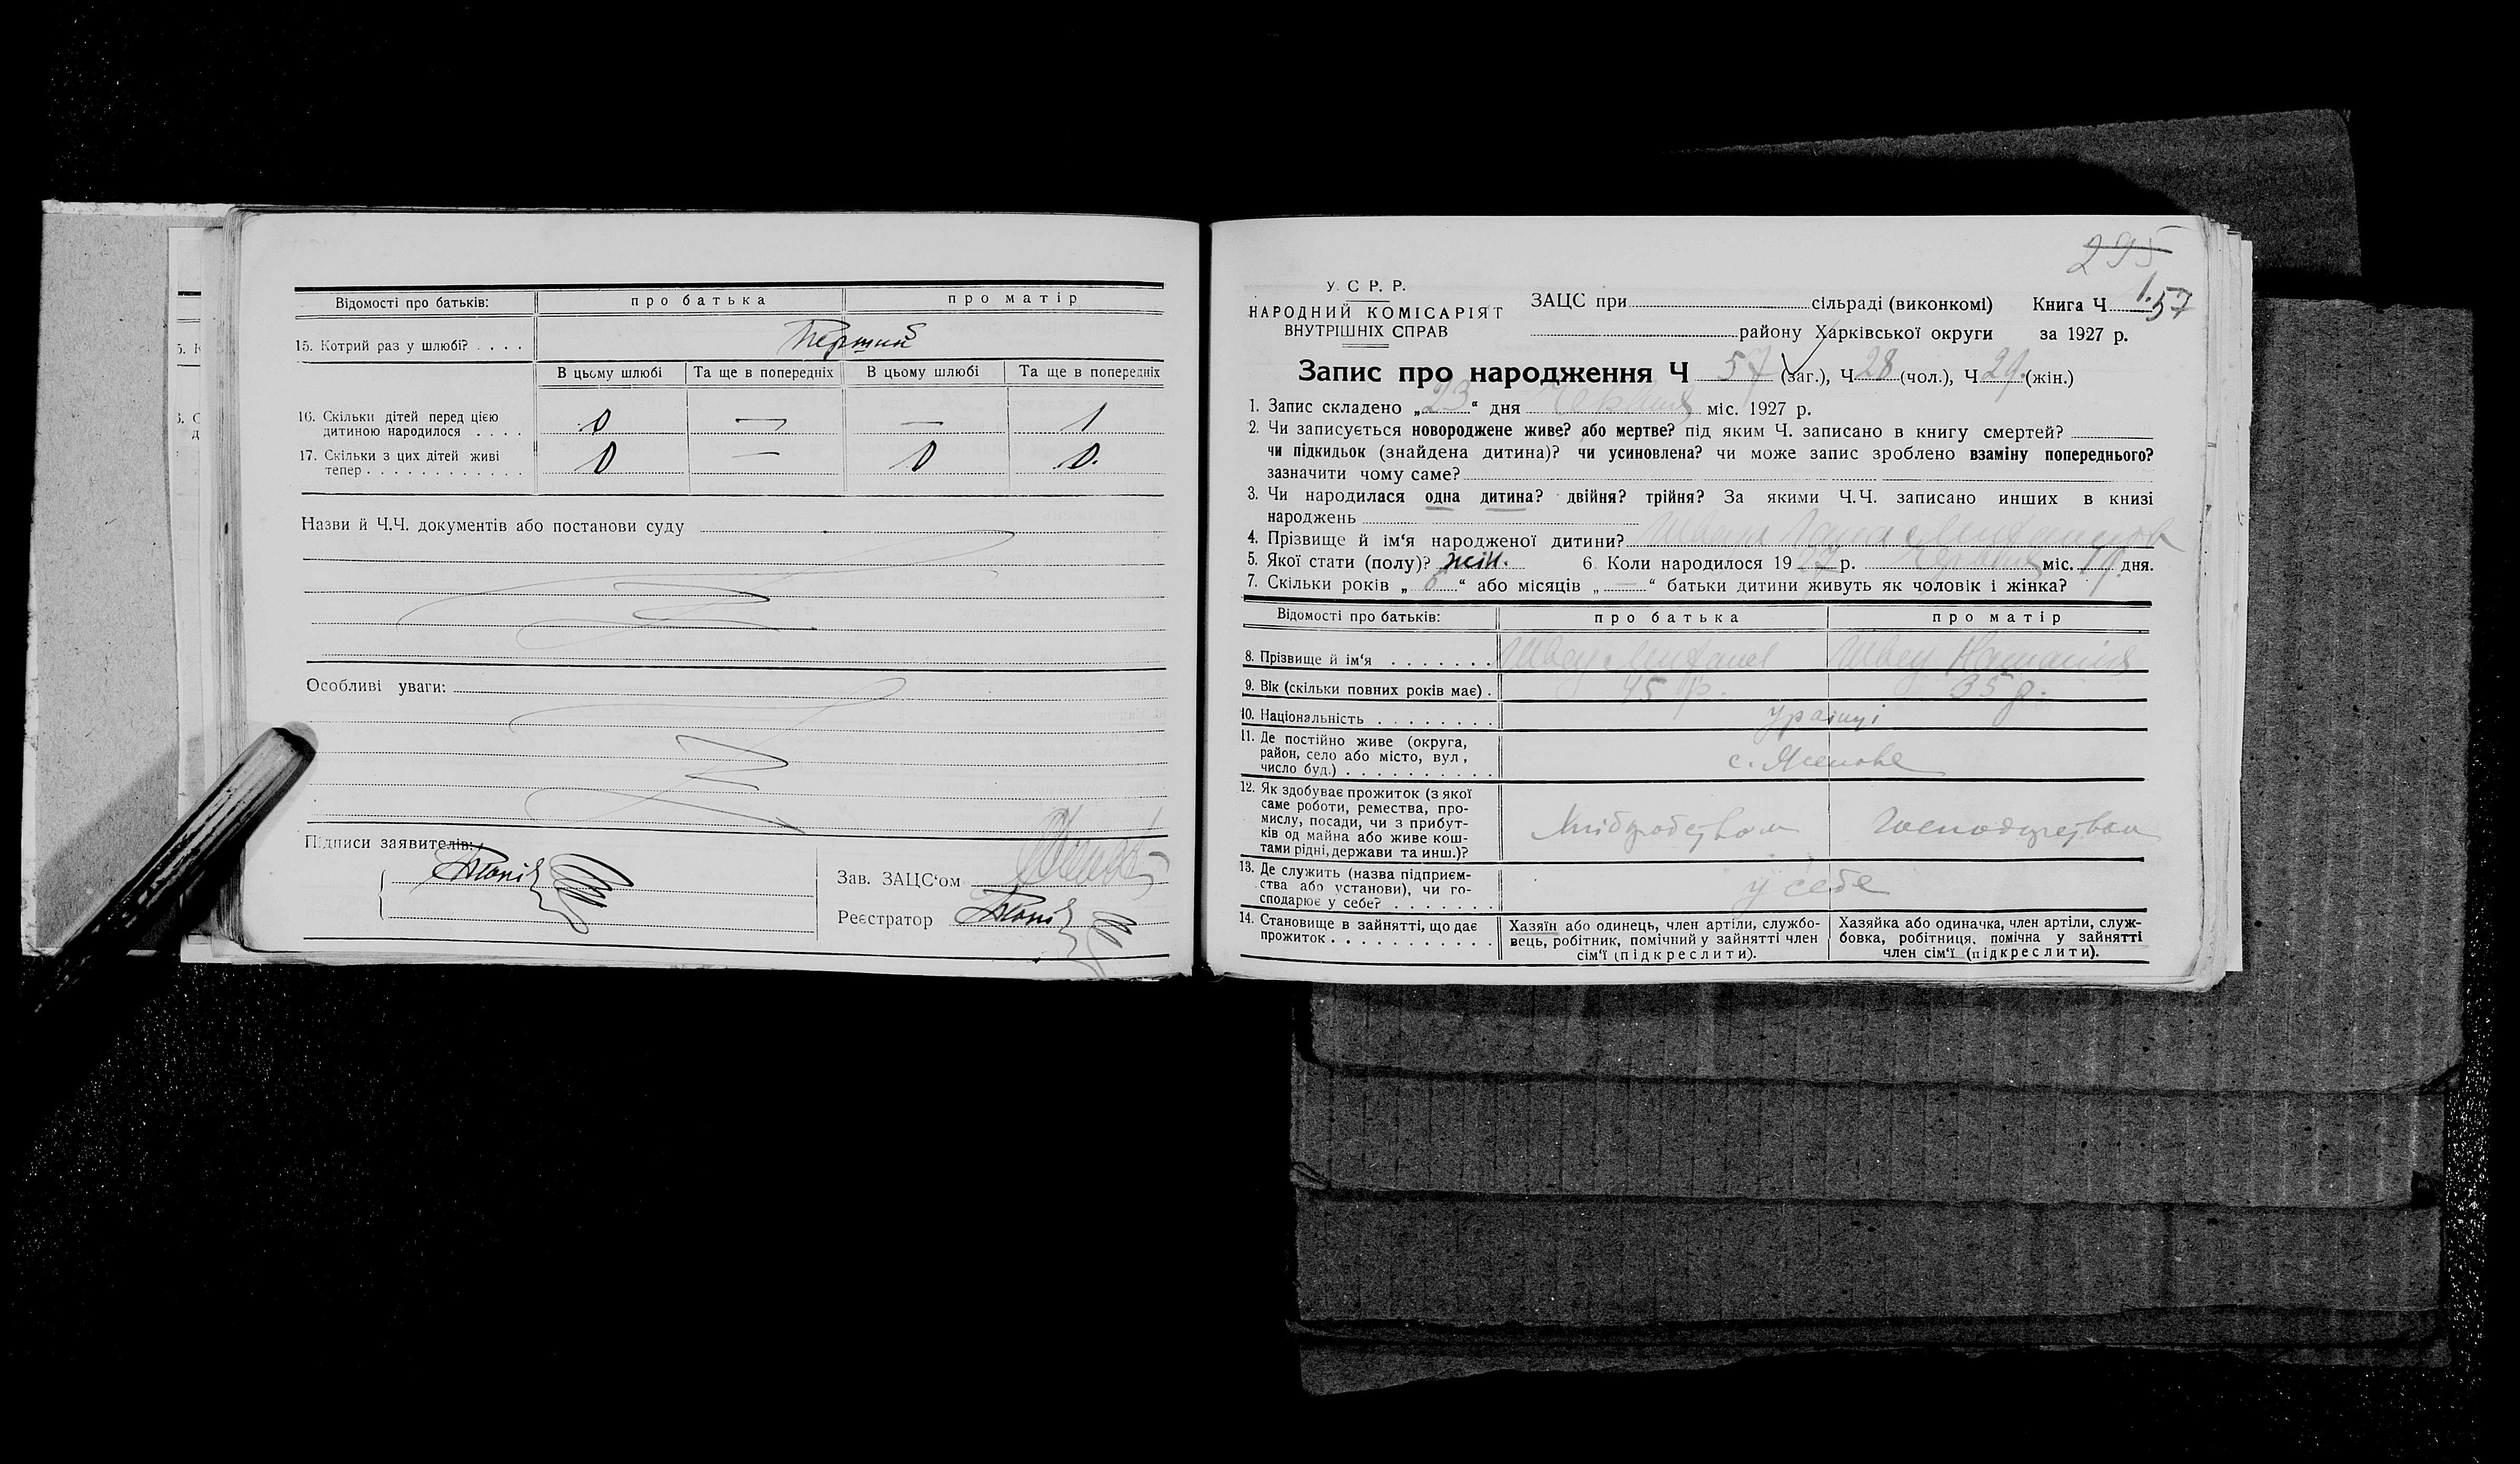 Відомості про батьків: про батька про матір
15. Котрий раз у шлюбі? . . . . Перший
В цьому шлюбі Та ще в попередніх В цьому шлюбі Та ще в попередніх
16. Скільки дітей перед цією
дитиною народилося . . . . 0 — — 1
17. Скільки з цих дітей живі
тепер . . . . . . . . . . . . 0 — 0 0.
Назви й Ч.Ч. документів або постанови суду
Особливі уваги:
Підписи заявителів:
Зав. ЗАЦС‘ом
Реєстратор
295
У. С. Р. Р.
НАРОДНИЙ КОМІСАРІЯТ
ВНУТРІШНІХ СПРАВ
ЗАЦС при сільраді (виконкомі) Книга Ч 1. 57
району Харківської округи за 1927 р.
Запис про народження Ч 57 (заг.), Ч 28 (чол.), Ч 29. (жін.)
1. Запис складено „23“ дня міс. 1927 р.
2. Чи записується новороджене живе? або мертве? під яким Ч. записано в книгу смертей?
чи підкидьок (знайдена дитина)? чи усиновлена? чи може запис зроблено взаміну попереднього?
зазначити чому саме?
3. Чи народилася одна дитина? двійня? трійня? За якими Ч.Ч. записано инших в книзі
народжень
4. Прізвище й ім‘я народженої дитини?
5. Якої стати (полу)? жін. 6. Коли народилося 1927 р. міс. 19. дня.
7. Скільки років „6“ або місяців „—“ батьки дитини живуть як чоловік і жінка?
Відомості про батьків: про батька про матір
8. Прізвище й ім‘я . . . . . . . Швец Швец Наталія
9. Вік (скільки повних років має) . 45 р. 35 р.
10. Національність . . . . . . . . українці
11. Де постійно живе (округа,
район, село або місто, вул,
число буд.) . . . . . . . . . . с. Ясенове
12. Як здобуває прожиток (з якої
саме роботи, ремества, про-
мислу, посади, чи з прибут-
ків од майна або живе кош-
тами рідні, держави та инш.)? Хліборобством Господарством
13. Де служить (назва підприєм-
ства або установи), чи го-
сподарює у себе? . . . . . . . у себе
14. Становище в зайнятті, що дає
прожиток . . . . . . . . . . .
Хазяїн або одинець, член артіли, службо-
вець, робітник, помічний у зайнятті член
сім‘ї (підкреслити).
Хазяйка або одиначка, член артіли, служ-
бовка, робітниця, помічна у зайнятті
член сім‘ї (підкреслити).